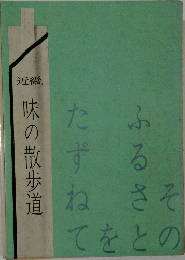 近畿
味の散歩道
その
ふるさと
を
たずねて